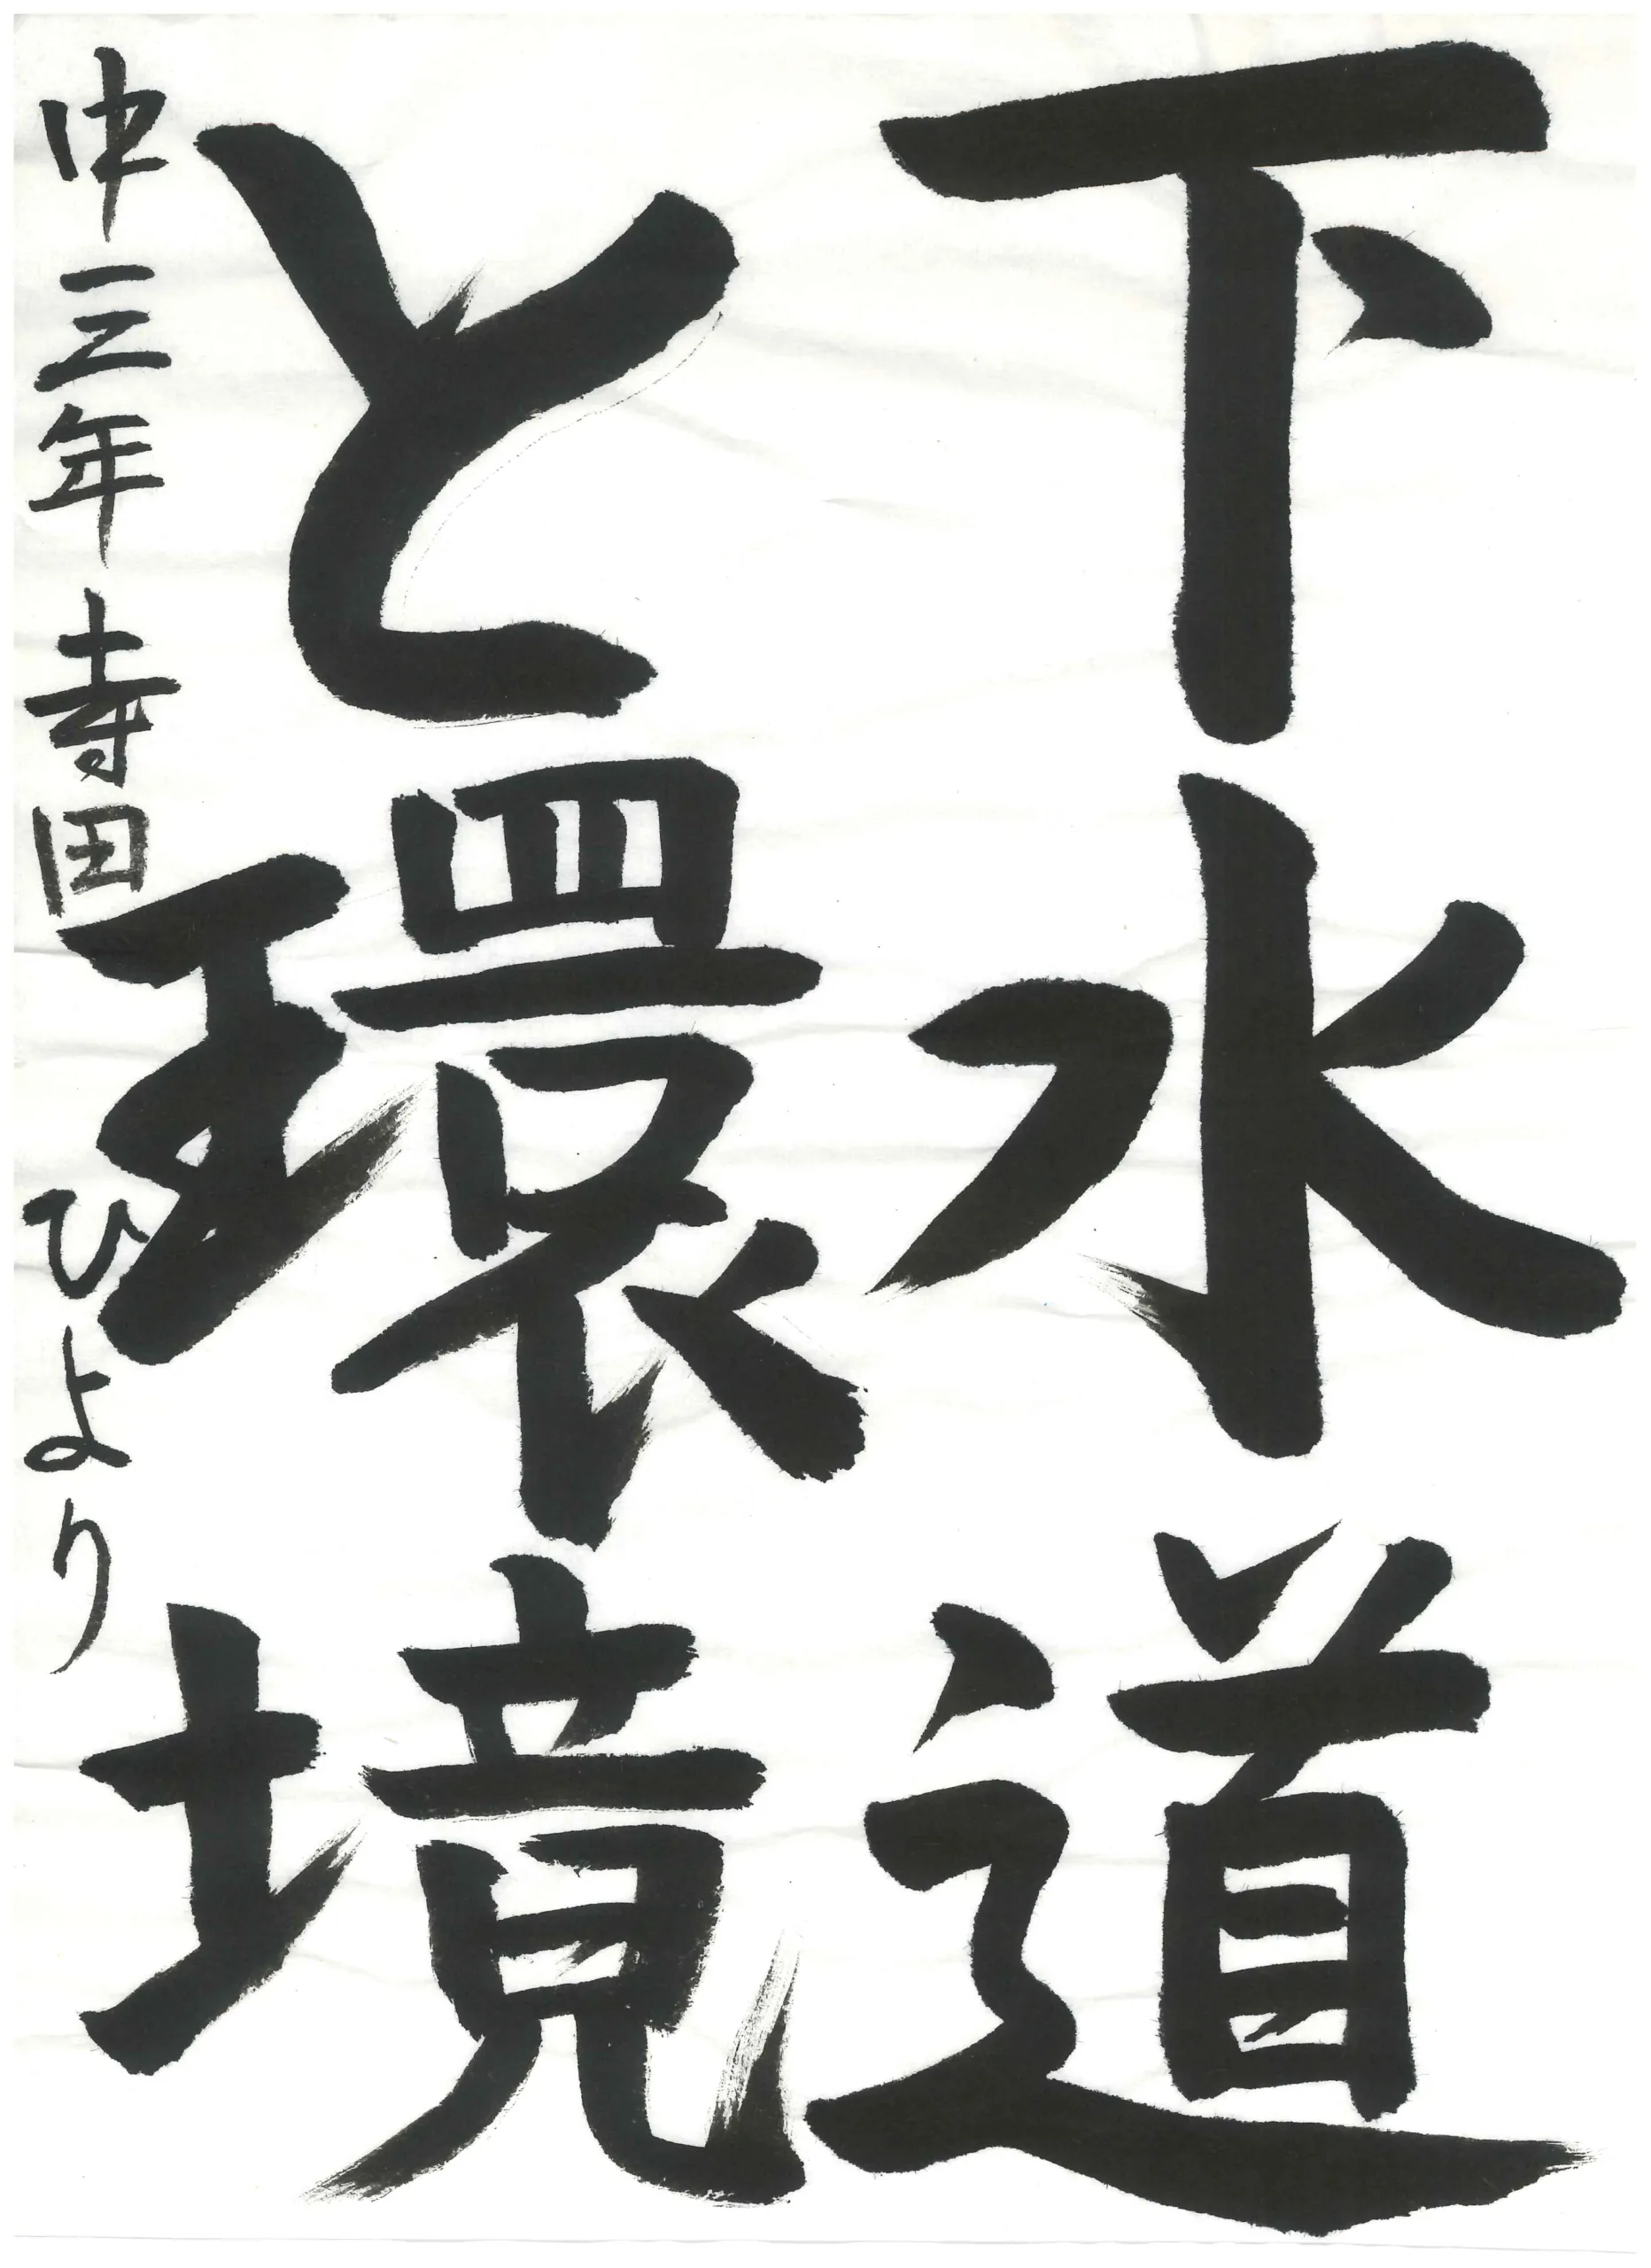 下水道
と環境
中三年 寺田 ひより